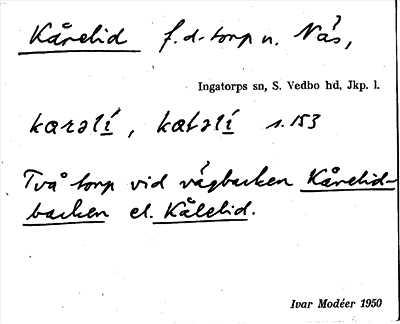 Kårelid f.d. torp u. Näs,
Ingatorps sn, S. Vedbo hd, Jkp. l.
karəlí, katəlí s. 153
Två torp vid vägbacken Kårelid-
backen el. Kålelid.
Ivar Modéer 1950